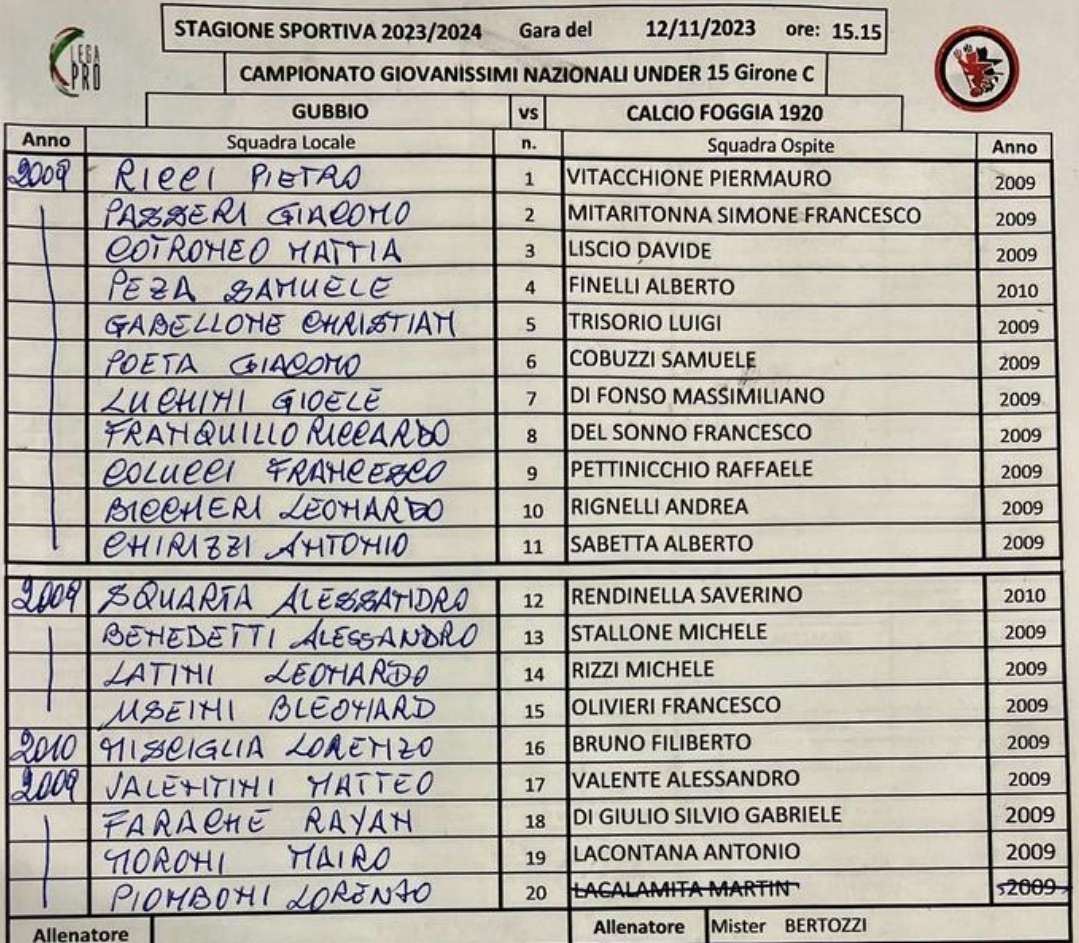 STAGIONE SPORTIVA 2023/2024 Gara del 12/11/2023 ore: 15.15
LEGA PRO
CAMPIONATO GIOVANISSIMI NAZIONALI UNDER 15 Girone C
GUBBIO vs CALCIO FOGGIA 1920
Anno Squadra Locale n. Squadra Ospite Anno
2009 RICCI PIETRO 1 VITACCHIONE PIERMAURO 2009
PASSERI GIACOMO 2 MITARITONNA SIMONE FRANCESCO 2009
COTROMEO MATTIA 3 LISCIO DAVIDE 2009
PEZA SAMUELE 4 FINELLI ALBERTO 2010
GABELLONE CHRISTIAN 5 TRISORIO LUIGI 2009
POETA GIACOMO 6 COBUZZI SAMUELE 2009
LUCHINI GIOELE 7 DI FONSO MASSIMILIANO 2009
FRANQUILLO RICCARDO 8 DEL SONNO FRANCESCO 2009
COLUCCI FRANCESCO 9 PETTINICCHIO RAFFAELE 2009
BICCHERI LEONARDO 10 RIGNELLI ANDREA 2009
CHIRIZZI ANTONIO 11 SABETTA ALBERTO 2009
2009 SQUARTA ALESSANDRO 12 RENDINELLA SAVERINO 2010
BENEDETTI ALESSANDRO 13 STALLONE MICHELE 2009
LATINI LEONARDO 14 RIZZI MICHELE 2009
USEINI BLEONARD 15 OLIVIERI FRANCESCO 2009
2010 MISCIGLIA LORENZO 16 BRUNO FILIBERTO 2009
2009 VALENTINI MATTEO 17 VALENTE ALESSANDRO 2009
FARACHE RAYAN 18 DI GIULIO SILVIO GABRIELE 2009
MORONI MAIRO 19 LACONTANA ANTONIO 2009
PIOMBONI LORENZO 20 LACALAMITA MARTIN 2009
Allenatore Allenatore Mister BERTOZZI